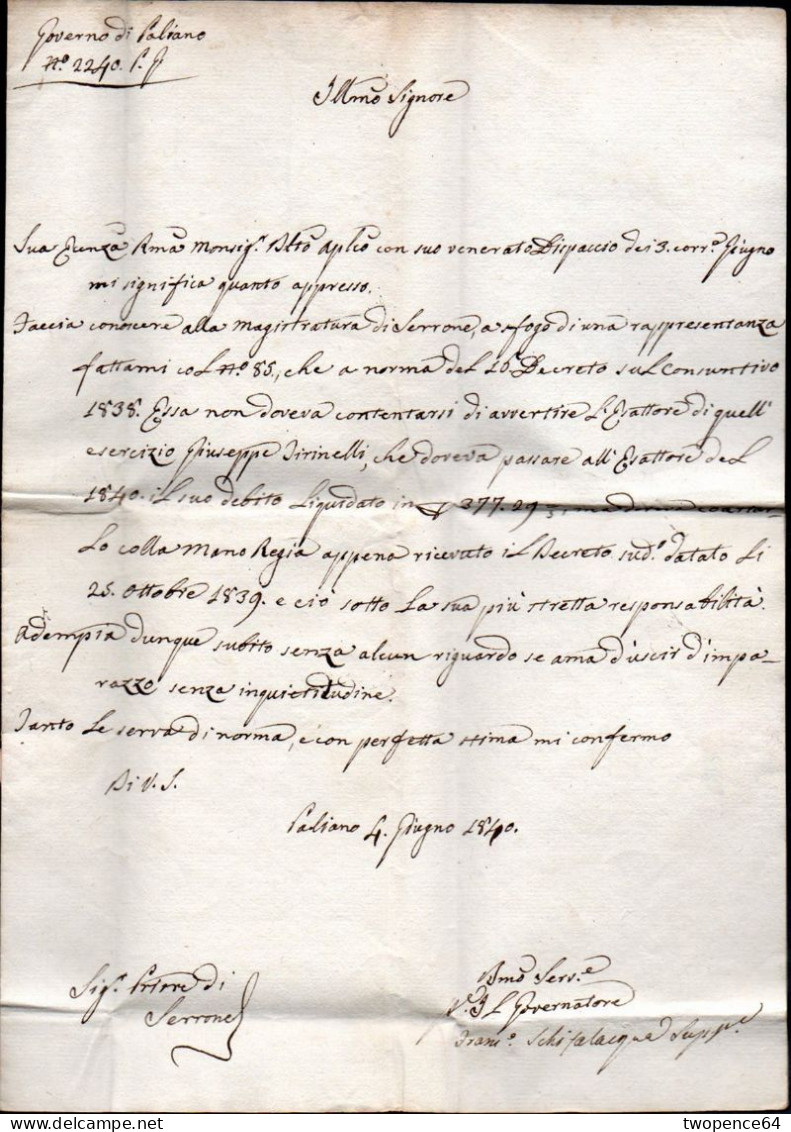 Governo di Paliano
N.° 2240. P. G
Illmo Signore
Sua Eccnza Rma Monsig.r Dlto Aplco con suo venerato Dispaccio dei 3. corr.e Giugno
mi significa quanto appresso.
Faccia conoscere alla Magistratura di Serrone, a sfogo di una rappresentanza
fattami col N.° 85, che a norma del 10° Decreto sul Consuntivo
1838. Essa non doveva contentarsi di avvertire l'Esattore di quell'
esercizio Giuseppe Tirinelli, che doveva passare all'Esattore del
1840. il suo debito liquidato in 377.29
lo colla Mano Regia appena ricevuto il Decreto sud.° datato li
25. Ottobre 1839. e ciò sotto la sua più stretta responsabilità.
Adempia dunque subito senza alcun riguardo se ama d'uscir d'impa-
razzo senza inquietitudine.
Tanto le serva di norma, e con perfetta stima mi confermo
Di V. S.
Paliano 4. Giugno 1840.
Sig.r Priore di
Serrone
Dmo Serv.e
P. Il Governatore
Franc.o Schifalacqua Supp.e
twopence64